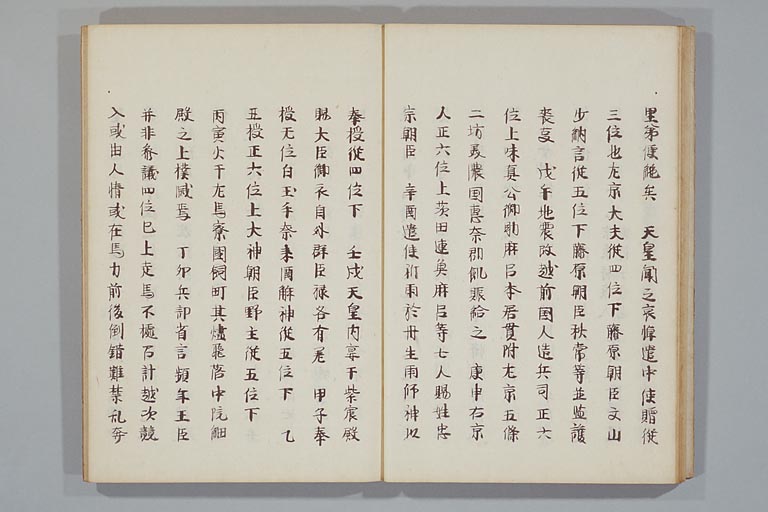 里第俄絁矣　天皇聞之哀悼遣中使贈從
三位也左京大夫從四位下藤原朝臣文山
少納言從五位下藤原朝臣秋常等並監護
喪事　戊午地震改越前国人造兵司正六
位上味真公御助麻呂本居貫附左京五條
二坊美濃国惠奈郡飢賑給之　庚申右京
人正六位上茨田連魚麻呂等七人賜姓忠
宗朝臣　辛酉遣使祈雨於丹生雨師神以
奉授從四位下　壬戌天皇内宴于紫宸殿
賜大臣御衣自外群臣禄各有差　甲子奉
授无位白玉手奈来酒解神從五位下　乙
丑授正六位上大神朝臣野主從五位下
丙寅火于左馬寮園飼町其燼飛落中院細
殿之上撲滅焉　丁卯兵部省言頻年王臣
并非參議四位已上走馬不據名計越次競
入或由人情或在馬力前後倒錯難禁乱奔